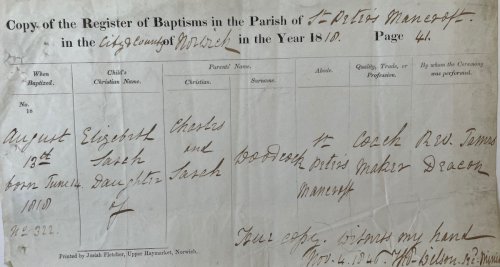 Copy of the Register of Baptisms in the Parish of St Peter's Mancroft.
in the City & County of Norwich in the Year 1818. Page 41.
When Baptized.
Child's Christian Name.
Parents' Name.
Christian.
Surname.
Abode.
Quality, Trade, or Profession.
By whom the Ceremony was performed.
No.
18
August
13th
born June 14
1818
No 322.
Elizabeth
Sarah
Daughter
of
Charles
and
Sarah
St
Peter's
Mancroft
Coach
Maker
Rev. James
Deacon
True copy. Witness my hand
Nov. 4. 1846.
Printed by Josiah Fletcher, Upper Haymarket, Norwich.